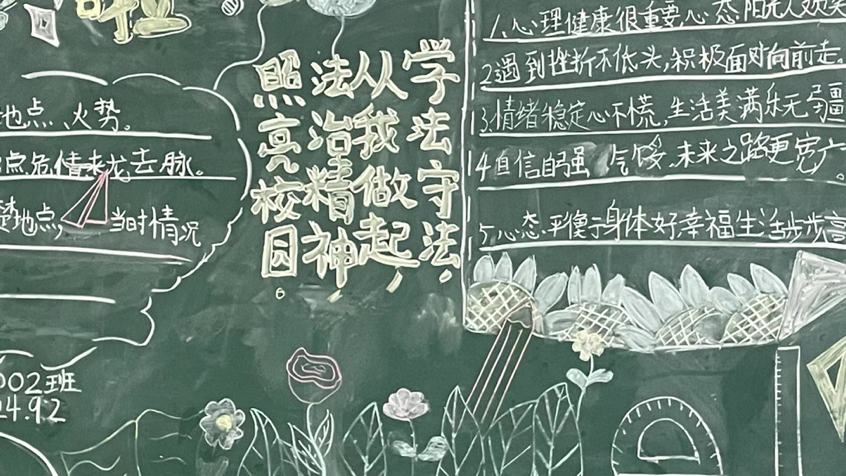 地点、火势。
点危情来龙去脉。
楚地点,当时情况
002班
24.9.2
学法守法,
从我做起,
法治精神
照亮校园。
1.心理健康很重要心态阳光人欢笑
2遇到挫折不低头,积极面对向前走。
3.情绪稳定心不慌,生活美满乐无疆
4自信自强 气馁.未来之路更宽广。
5.心态.平衡于身体好幸福生活步步高